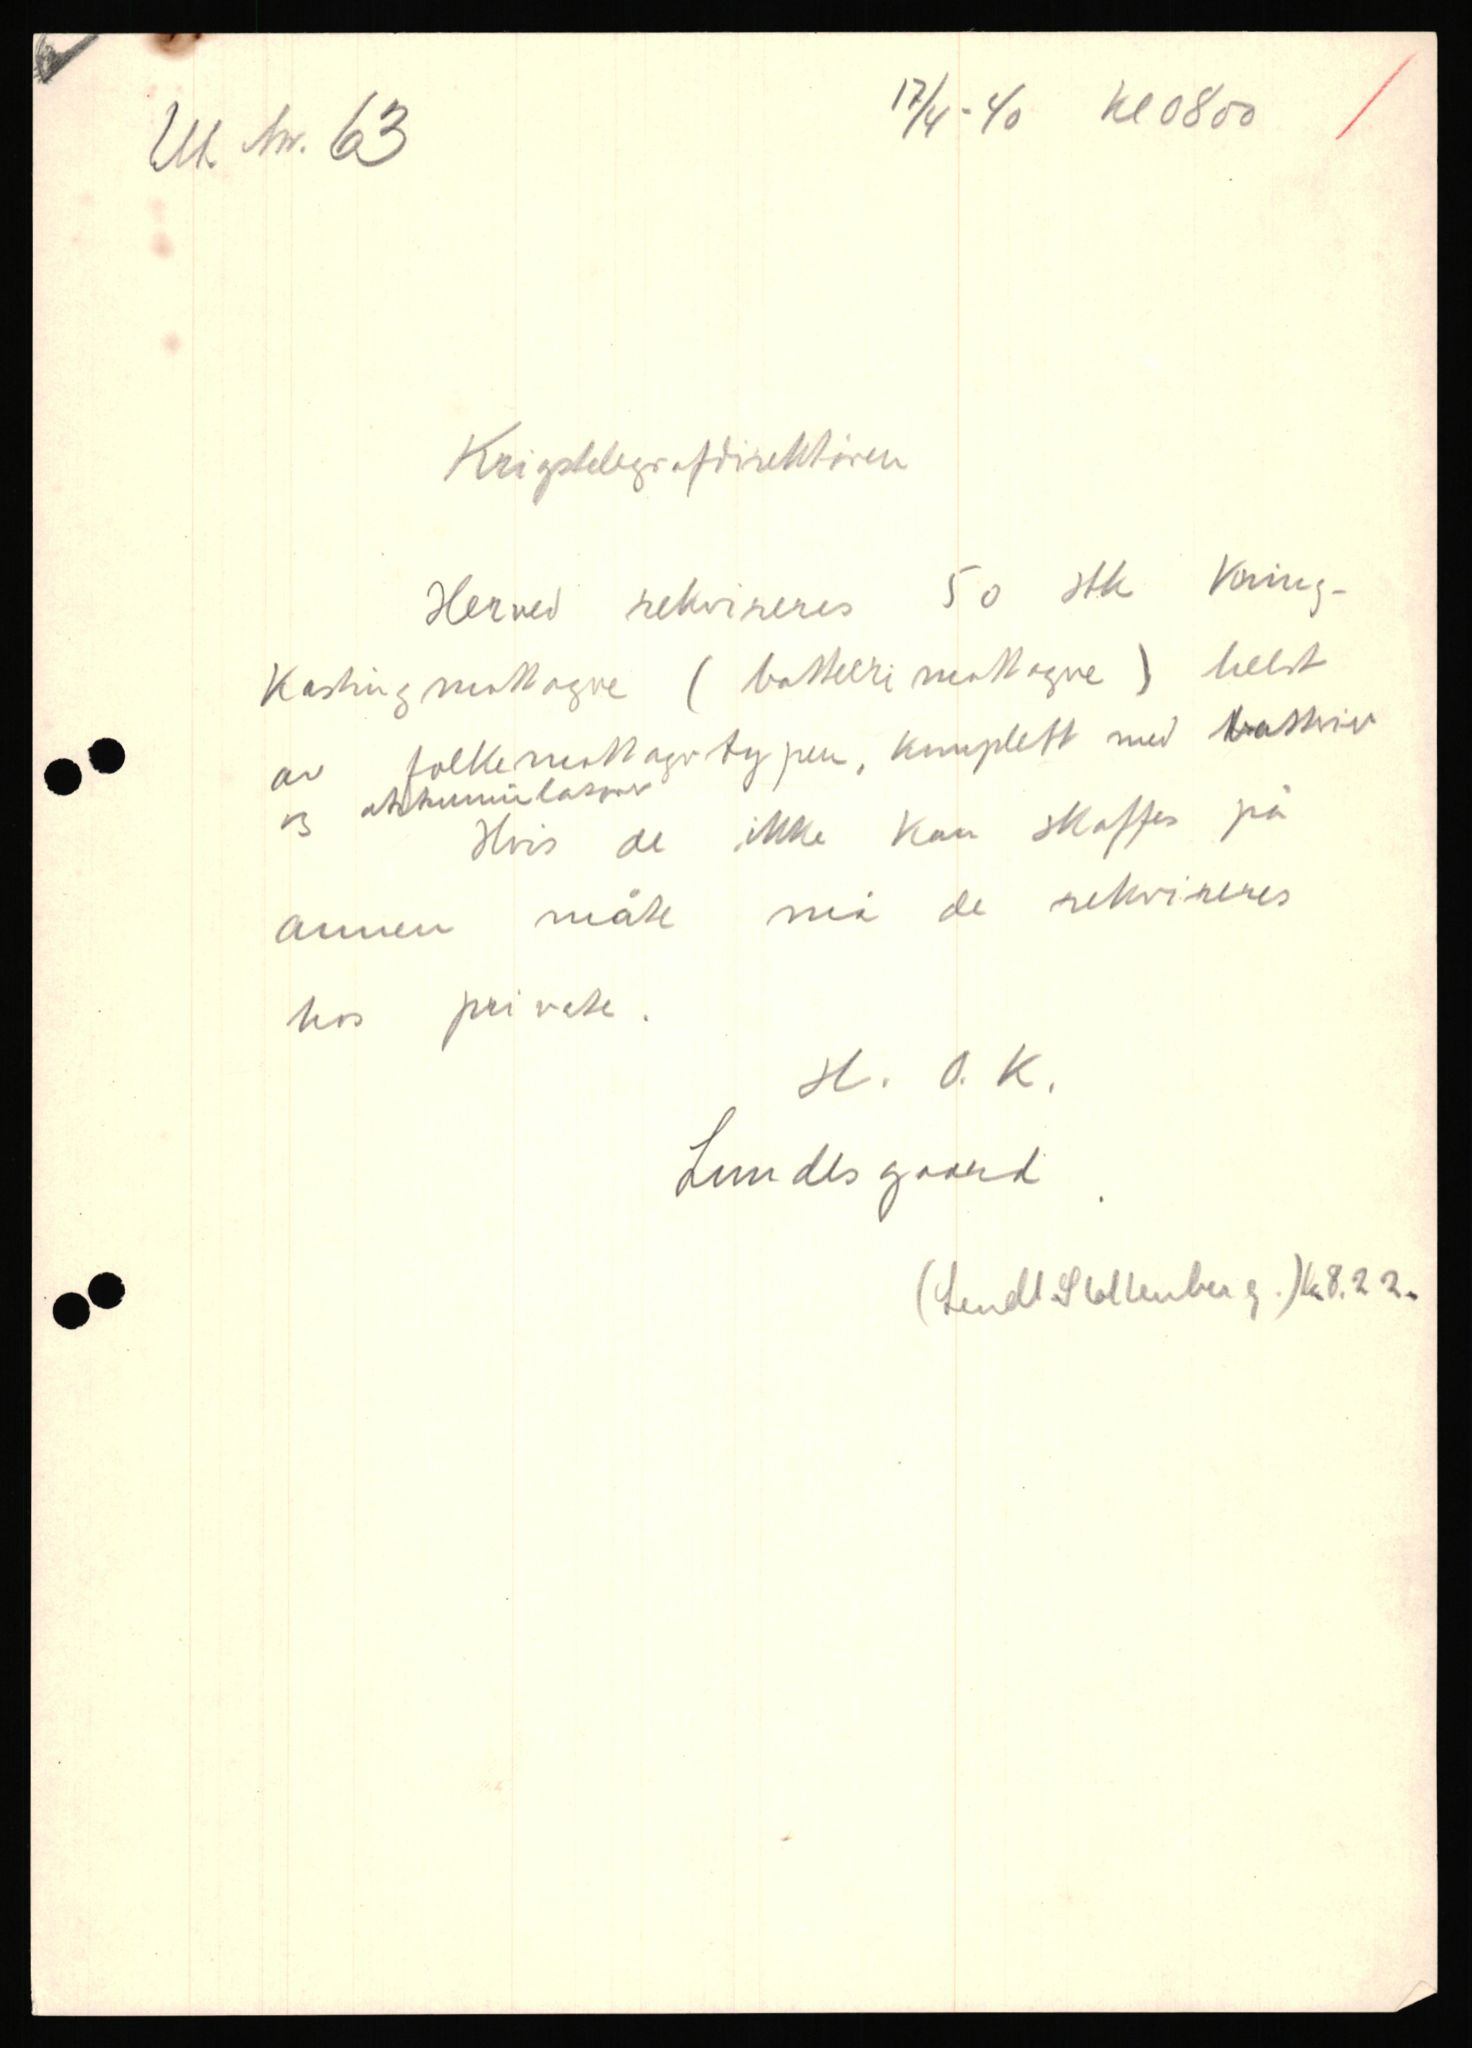 Ut. Nr. 63
17/4-40 Kl 0800
Krigstelegrafdirektören
Herved rekvireres 50 stk Kring-
kastingmottagre (batterimottagre) helst
av folkemottagrtypen, komplett med batterier
og akkumulatorer
Hvis de ikke kan skaffes på
annen måte må de rekvireres
hos private.
H. O. K.
Lundesgaard
(Sendt Stoltenberg.) kl. 8.22.